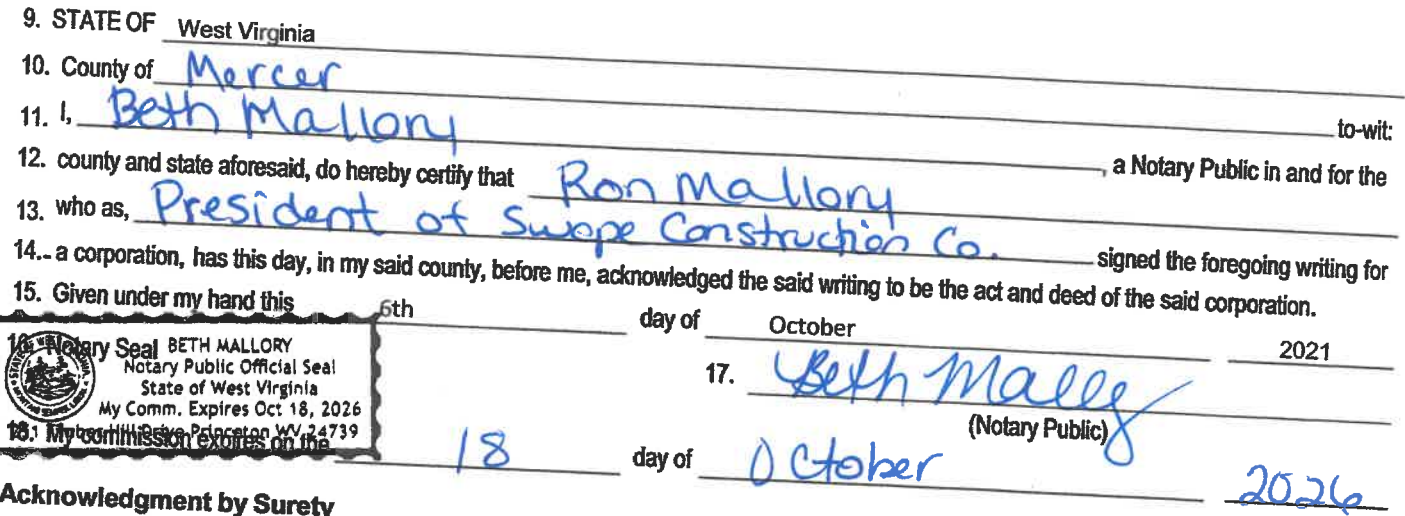 9. STATE OF West Virginia
10. County of Mercer to-wit:
11. I, Beth Mallory, a Notary Public in and for the
12. county and state aforesaid, do hereby certify that Ron Mallory
13. who as, President of Swope Construction Co. signed the foregoing writing for
14. a corporation, has this day, in my said county, before me, acknowledged the said writing to be the act and deed of the said corporation.
15. Given under my hand this 6th day of October 2021
16. Notary Seal
BETH MALLORY
Notary Public Official Seal
State of West Virginia
My Comm. Expires Oct 18, 2026
Drive Princeton WV 24739
17. Beth Mallory
(Notary Public)
18. My commission expires on the 18 day of October 2026
Acknowledgment by Surety